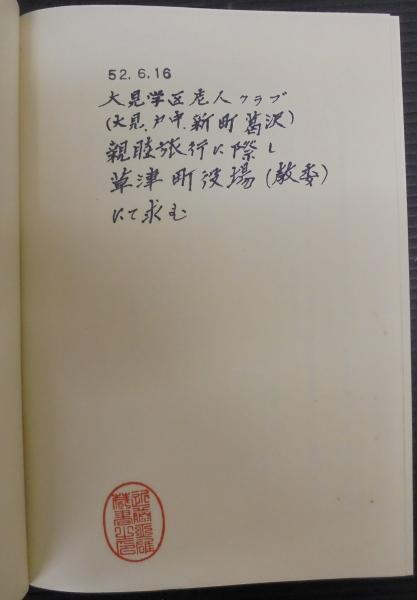 52.6.16
大見学区老人クラブ
(大見、戸中、新町葛沢)
親睦旅行に際し
草津町役場(教委)
にて求む
蔵書之印